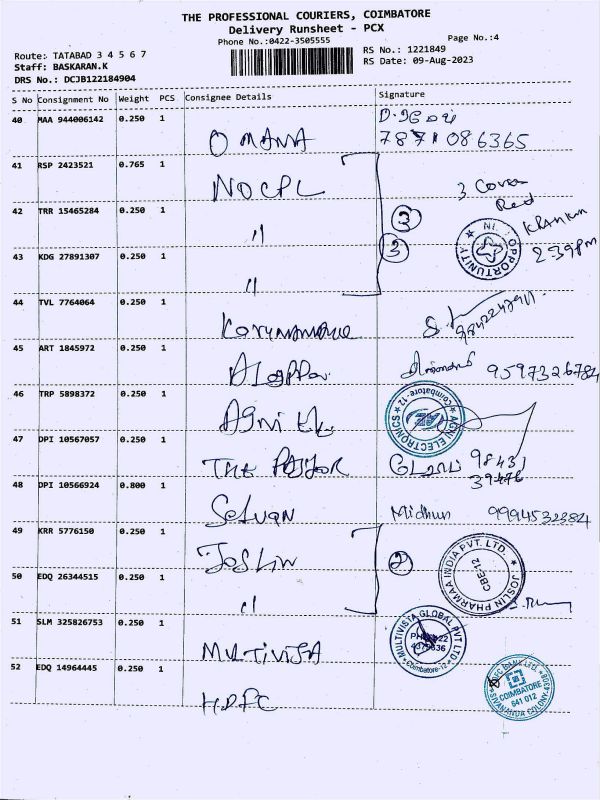 THE PROFESSIONAL COURIERS, COIMBATORE
Delivery Runsheet - PCX
Phone No.:0422-3505555
Page No.:4
Route: TATABAD 3 4 5 6 7
RS No.: 1221849
Staff: BASKARAN.K
RS Date: 09-Aug-2023
DRS No.: DCJB122184904
S No Consignment No Weight PCS Consignee Details Signature
40 MAA 944006142 0.250 1
O MANA 7871086365
41 RSP 2423521 0.765 1
NOCPL 3 Cover
Red
42 TRR 15465284 0.250 1
" 3
OPPORTUNITY
2:39pm
43 KDG 27891307 0.250 1
" 3
44 TVL 7764064 0.250 1
45 ART 1845972 0.250 1
9597326784
46 TRP 5898372 0.250 1
Agni Ele
AGNI ELECTRONICS Coimbatore-12
47 DPI 10567057 0.250 1
THE 98431
39476
48 DPI 10566924 0.800 1
Selvan Midhun 9994532384
49 KRR 5776150 0.250 1
JOSLIN 2
JOSLIN PHARMAA INDIA PVT. LTD.
CBE-12
50 EDQ 26344515 0.250 1
"
51 SLM 325826753 0.250 1
MULTIVISTA
MULTIVISTA GLOBAL PVT LTD
Coimbatore-12
52 EDQ 14964445 0.250 1
HDFC
BANK LTD.
COIMBATORE
641 012
SIVANANDA COLONY